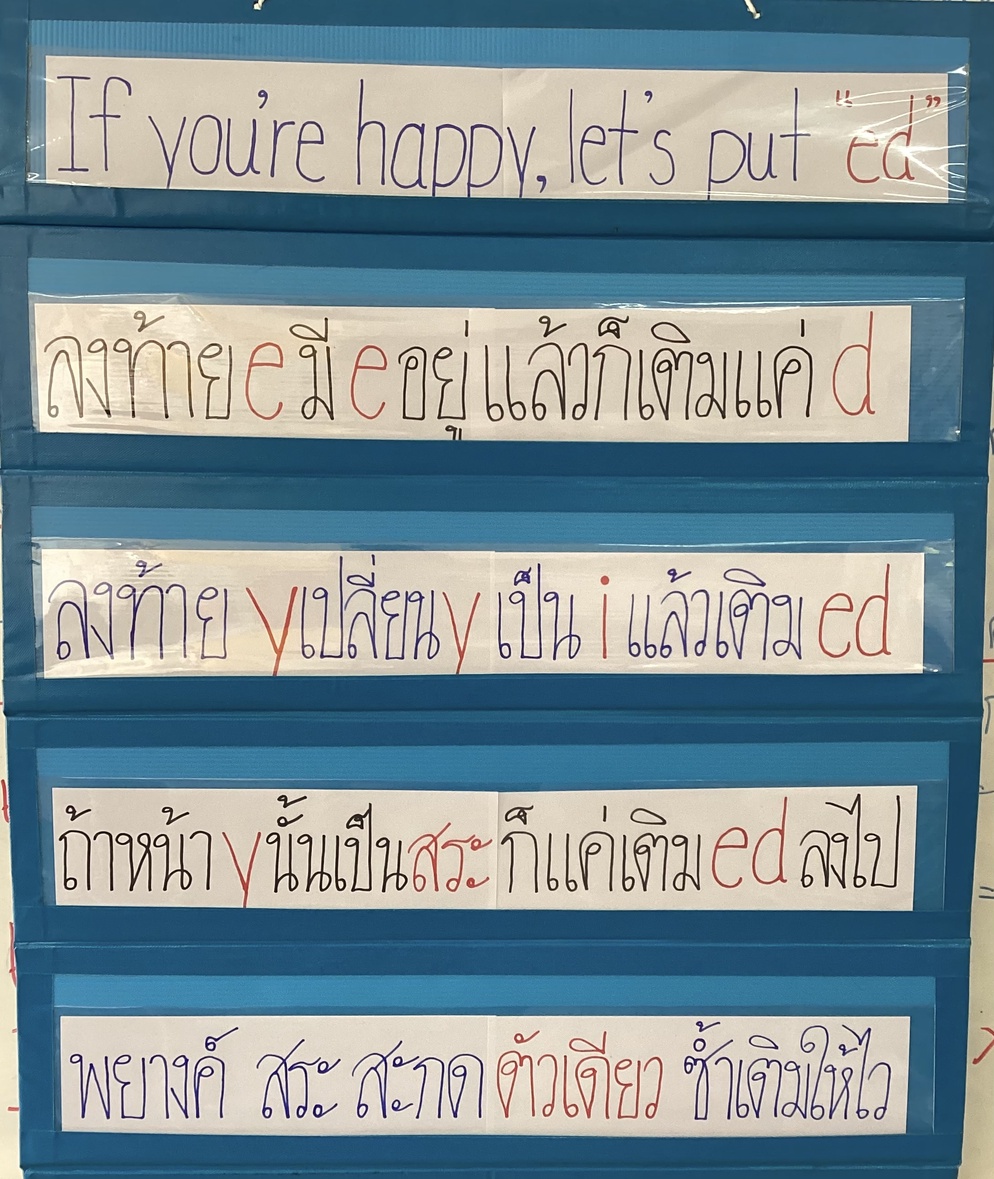 If you're happy, let's put "ed"
ลงท้าย e มี e อยู่ แล้วก็เติมแค่ d
ลงท้าย y เปลี่ยน y เป็น i แล้วเติม ed
ถ้าหน้า y นั้นเป็นสระ ก็แค่เติม ed ลงไป
พยางค์ สระ สะกด ตัวเดียว ซ้ำเติมให้ไว